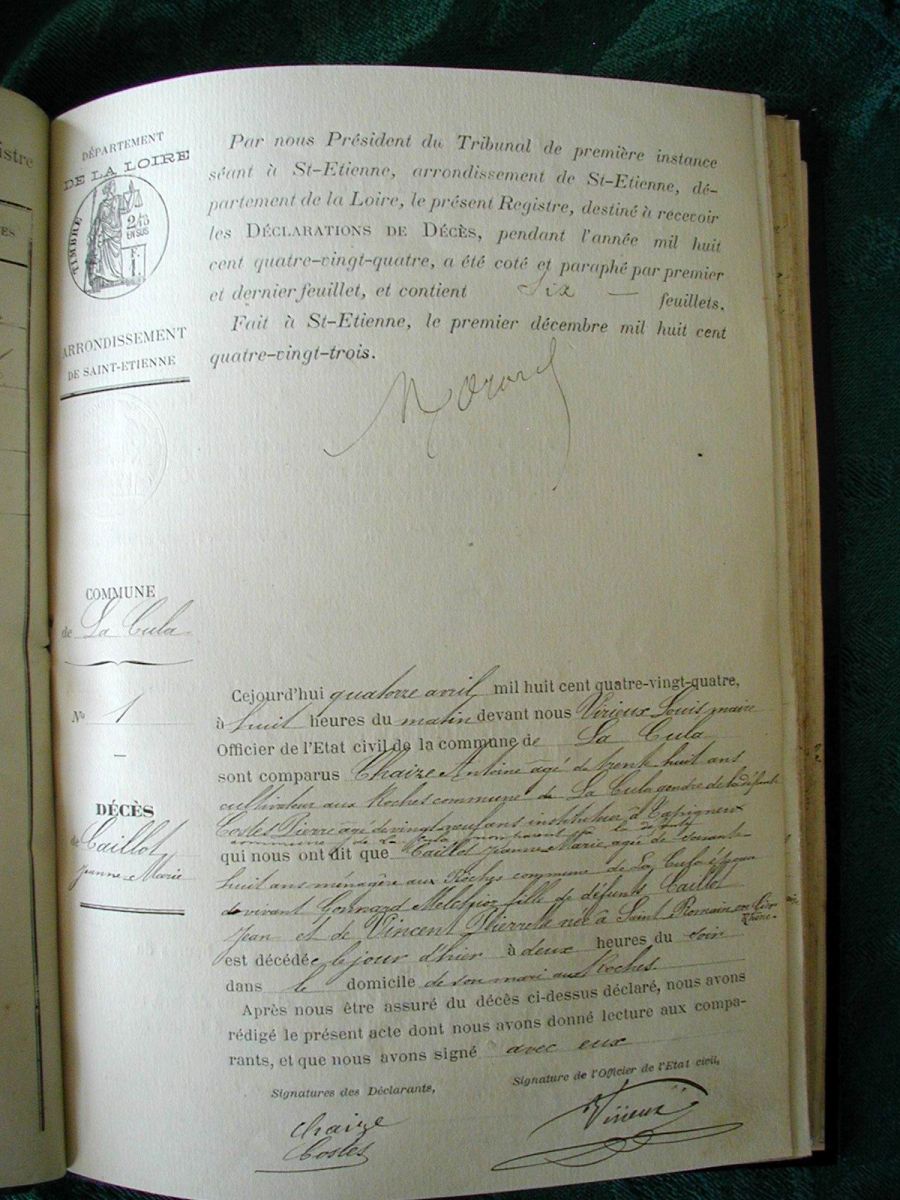 istre
ES
DÉPARTEMENT
DE LA LOIRE
TIMBRE
2/10
EN SUS
ARRONDISSEMENT
DE SAINT-ETIENNE
Par nous Président du Tribunal de première instance
séant à St-Etienne, arrondissement de St-Etienne, dé-
partement de la Loire, le présent Registre, destiné à recevoir
les DÉCLARATIONS DE DÉCÈS, pendant l'année mil huit
cent quatre-vingt-quatre, a été coté et paraphé par premier
et dernier feuillet, et contient Six — feuillets.
Fait à St-Etienne, le premier décembre mil huit cent
quatre-vingt-trois.
COMMUNE
de La Cula
No 1
DÉCÈS
de Caillot
Jeanne-Marie
Cejourd'hui quatorze avril mil huit cent quatre-vingt-quatre,
à huit heures du matin devant nous Virieux Louis maire
Officier de l'Etat civil de la commune de La Cula
sont comparus Chaize Antoine agé de trente huit ans
cultivateur aux Roches commune de La Cula gendre de la défunte
Costes Pierre agé de vingt-neuf ans instituteur à
commune de La Cula non parent de la défunte
qui nous ont dit que Caillot Jeanne-Marie, agée de soixante
huit ans ménagère aux Roches commune de La Cula épouse
de vivant Gonnard Melchior fille de défunts Caillot
Jean et de Vincent Pierrette née à Saint Romain en Gier
Rhône
est décédée le jour d'hier à deux heures du soir
dans le domicile de son mari aux Roches
Après nous être assuré du décès ci-dessus déclaré, nous avons
rédigé le présent acte dont nous avons donné lecture aux compa-
rants, et que nous avons signé avec eux
Signatures des Déclarants,
Signature de l'Officier de l'Etat civil,
Chaize
Costes
Virieux